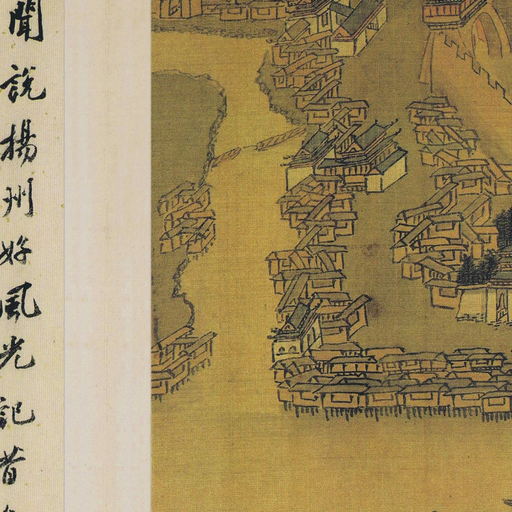 聞說揚州好風光記昔